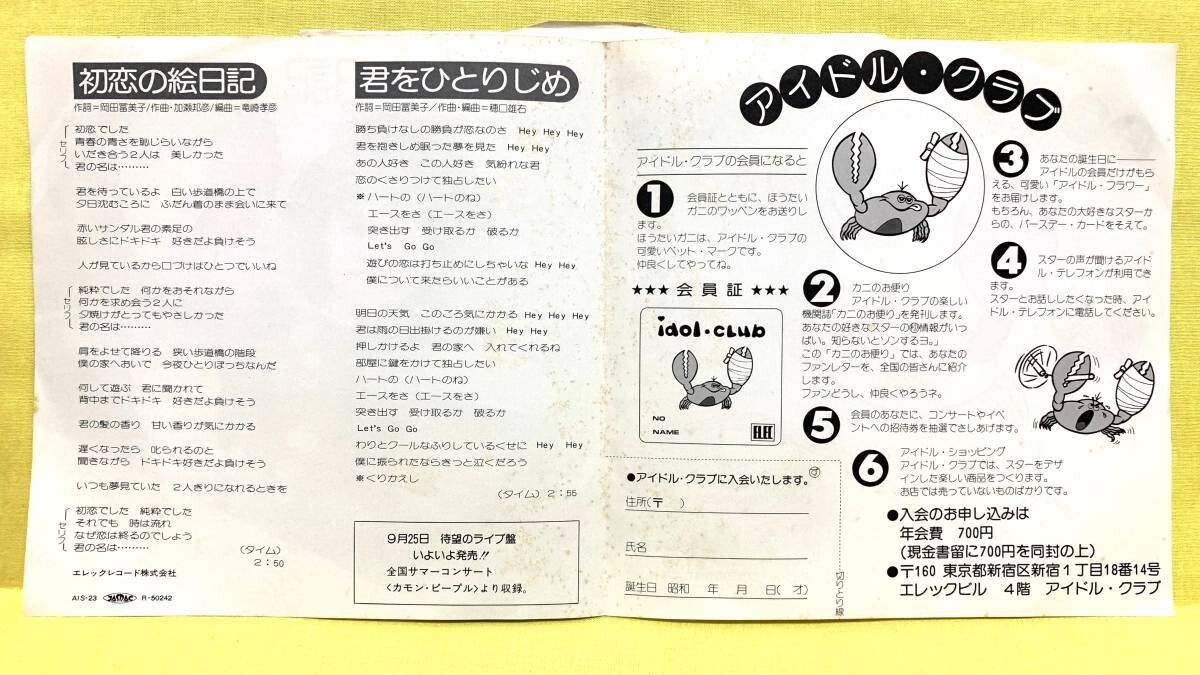 初恋の絵日記
作詞=岡田冨美子/作曲・加瀬邦彦/編曲=竜崎孝彦
セリフ
初恋でした
青春の青さを恥じらいながら
いだき合う2人は 美しかった
君の名は………
君を待っているよ 白い歩道橋の上で
夕日沈むころに ふだん着のまま会いに来て
赤いサンダル君の素足の
眩しさにドキドキ 好きだよ負けそう
人が見ているから口づけはひとつでいいね
セリフ
純粋でした 何かをおそれながら
何かを求め合う2人に
夕焼けがとってもやさしかった
君の名は………
肩をよせて降りる 狭い歩道橋の階段
僕の家へおいで 今夜ひとりぼっちなんだ
何して遊ぶ 君に聞かれて
背中までドキドキ 好きだよ負けそう
君の髪の香り 甘い香りが気にかかる
遅くなったら 叱られるのと
聞きながら ドキドキ好きだよ負けそう
いつも夢見ていた 2人きりになれるときを
セリフ
初恋でした 純粋でした
それでも 時は流れ
なぜ恋は終るのでしょう
君の名は………
(タイム)
2:50
エレックレコード株式会社
AIS-23 JASRAC R-50242
君をひとりじめ
作詞=岡田冨美子/作曲・編曲=穂口雄右
勝ち負けなしの勝負が恋なのさ Hey Hey Hey
君を抱きしめ眠った夢を見た Hey Hey
あの人好き この人好き 気紛れな君
恋のくさりつけて独占したい
※ハートの(ハートのね)
エースをさ(エースをさ)
突き出す 受け取るか 破るか
Let's Go Go
遊びの恋は打ち止めにしちゃいな Hey Hey
僕について来たらいいことがある
明日の天気 このごろ気にかかる Hey Hey Hey
君は雨の日出掛けるのが嫌い Hey Hey
押しかけるよ 君の家へ 入れてくれるね
部屋に鍵をかけて独占したい
ハートの(ハートのね)
エースをさ(エースをさ)
突き出す 受け取るか 破るか
Let's Go Go
わりとクールなふりしているくせに Hey Hey
僕に振られたならきっと泣くだろう
※くりかえし
(タイム)2:55
9月25日 待望のライブ盤
いよいよ発売!!
全国サマーコンサート
〈カモン・ピープル〉より収録。
アイドル・クラブ
アイドル・クラブの会員になると
1 会員証とともに、ほうたい
ガニのワッペンをお送りし
ます。
ほうたいガニは、アイドル・クラブの
可愛いペット・マークです。
仲良くしてやってね。
★★★ 会員証 ★★★
idol・club
NO
NAME
2 カニのお便り
アイドル・クラブの楽しい
機関誌「カニのお便り」を発刊します。
あなたの好きなスターの㊙情報がいっ
ぱい。知らないとソンするヨ。」
この「カニのお便り」では、あなたの
ファンレターを、全国の皆さんに紹介
します。
ファンどうし、仲良くやろうネ。
3 あなたの誕生日に――
アイドルの会員だけがもら
える、可愛い「アイドル・フラワー」
をお届けします。
もちろん、あなたの大好きなスターか
らの、バースデー・カードをそえて。
4 スターの声が聞けるアイド
ル・テレフォンが利用でき
ます。
スターとお話ししたくなった時、アイ
ドル・テレフォンに電話してください。
5 会員のあなたに、コンサートやイベ
ントへの招待券を抽選でさしあげます。
6 アイドル・ショッピング
アイドル・クラブでは、スターをデザ
インした楽しい商品をつくります。
お店では売っていないものばかりです。
●アイドル・クラブに入会いたします。
住所(〒 )
氏名
誕生日 昭和 年 月 日(才)
切りとり線
●入会のお申し込みは
年会費 700円
(現金書留に700円を同封の上)
●〒160 東京都新宿区新宿1丁目18番14号
エレックビル 4階 アイドル・クラブ